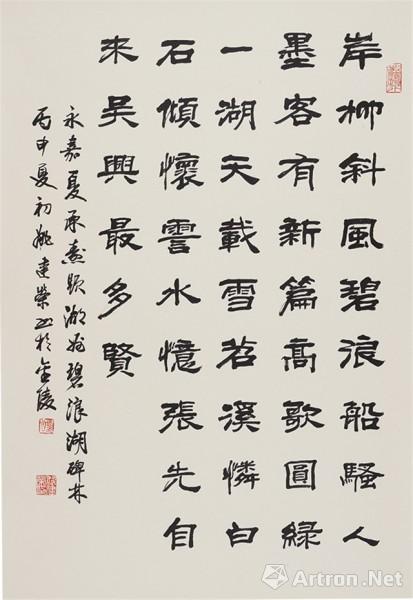 岸柳斜風碧浪船騷人
墨客有新篇高歌圓綠
一湖天載雪苕溪憐白
石傾懷霅水憶張先自
來吳興最多賢
永嘉夏承燾題湖州碧浪湖碑林
丙申夏初姚建榮书於金陵
Artron.Net